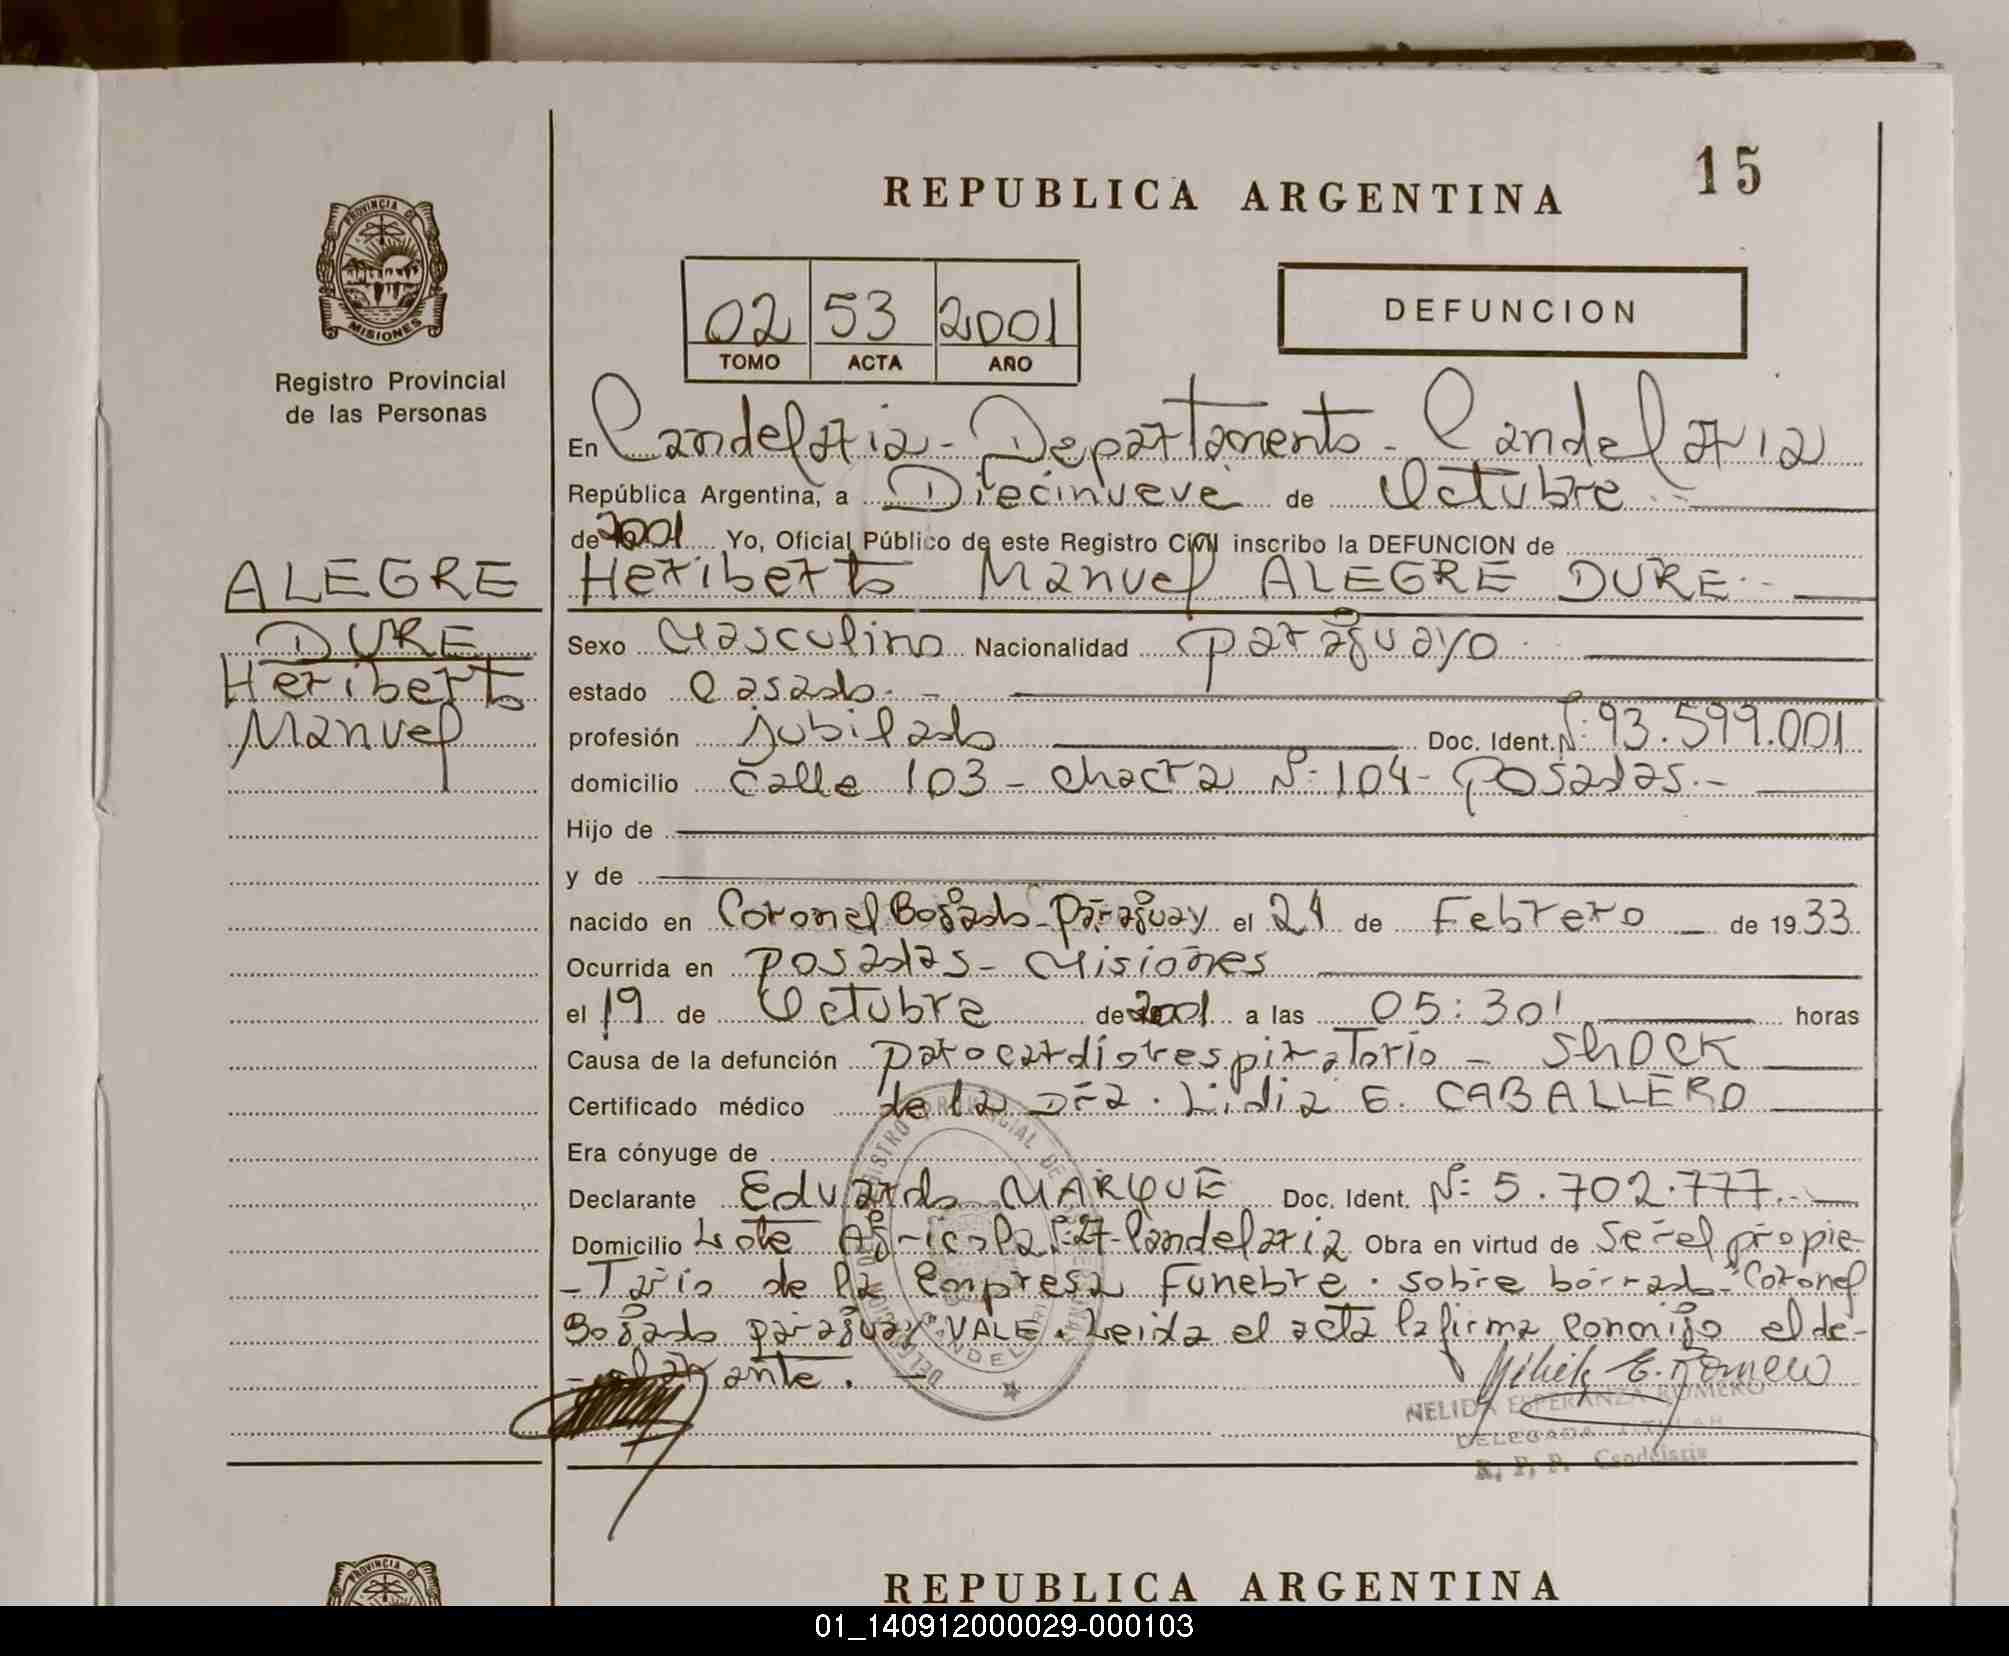 15
REPUBLICA ARGENTINA
PROVINCIA DE
MISIONES
Registro Provincial
de las Personas
02 53 2001
TOMO ACTA AÑO
DEFUNCION
En Candelaria - Departamento - Candelaria
República Argentina, a Diecinueve de Octubre
de 2001 Yo, Oficial Público de este Registro Civil inscribo la DEFUNCION de
ALEGRE
DURE
Heriberto
Manuel
Heriberto Manuel ALEGRE DURE
Sexo Masculino Nacionalidad paraguayo
estado Casado.-
profesión jubilado Doc. Ident. Nº: 93.599.001
domicilio Calle 103 - chacra Nº: 104 - Posadas.-
Hijo de
y de
nacido en Coronel Bogado - Paraguay el 24 de Febrero de 1933
Ocurrida en Posadas - Misiones
el 19 de Octubre de 2001 a las 05:30' horas
Causa de la defunción parocardiorespiratorio - Shock
Certificado médico de la Dra. Lidia E. CABALLERO
Era cónyuge de
Declarante Eduardo MARQUE Doc. Ident. Nº: 5.702.777.-
Domicilio Lote Agricola Candelaria Obra en virtud de ser el propie-
-tario de la Empresa Funebre. sobre borrado "Coronel
Bogado paraguay" VALE. Leida el acta la firma conmigo el de-
-clarante.
NELIDA ESPERANZA ROMERO
DELEGADA TITULAR
R. P. P. Candelaria
PROVINCIA
REPUBLICA ARGENTINA
01_140912000029-000103